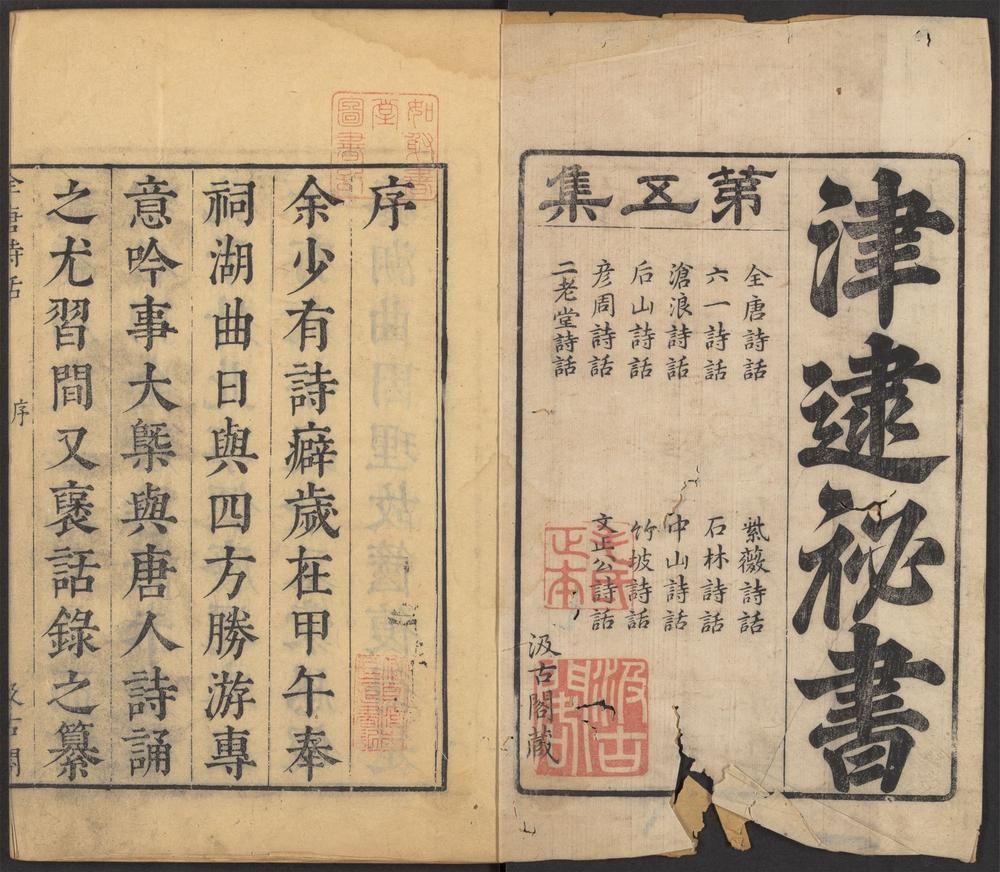 津逮祕書
第五集
全唐詩話
六一詩話
滄浪詩話
后山詩話
彥周詩話
二老堂詩話
紫薇詩話
石林詩話
中山詩話
竹坡詩話
文正公詩話
汲古閣藏
毛氏正本
汲古閣
序
余少有詩癖歲在甲午奉
祠湖曲日與四方勝游專
意吟事大槩與唐人詩誦
之尤習間又褒話錄之纂
全唐詩話
序
汲古閣